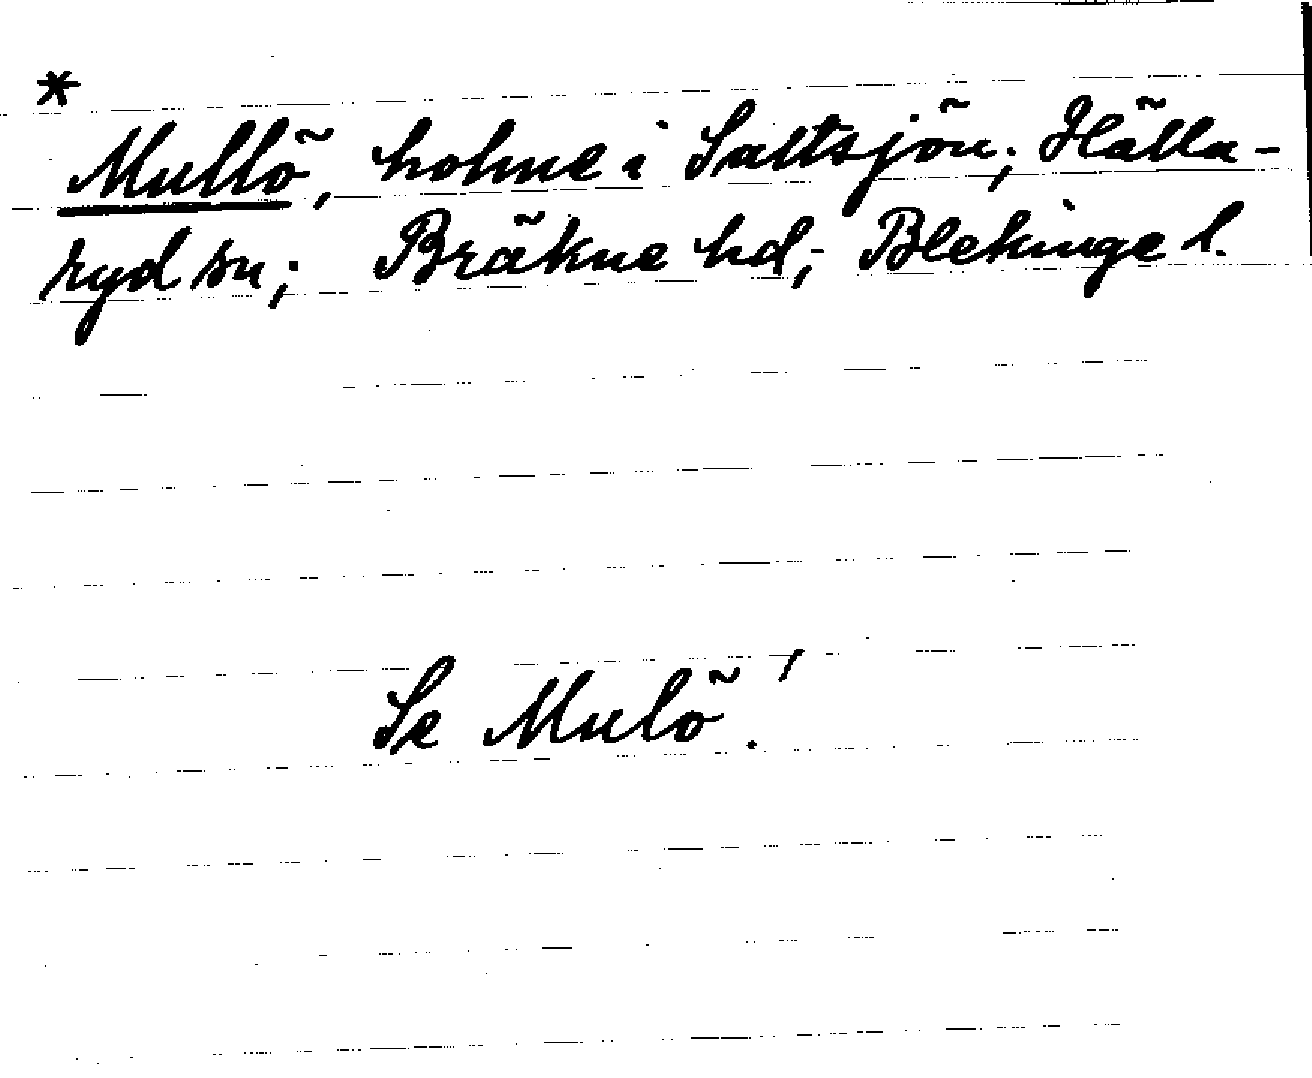 *
Mullö, holme i Saltsjön; Hälla-
ryd sn; Bräkne hd; Blekinge l.
Se Mulö!